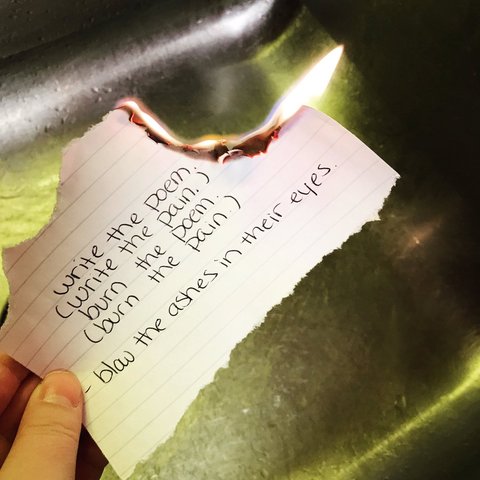 write the poem.
(write the pain.)
burn the poem.
(burn the pain.)
- blow the ashes in their eyes.